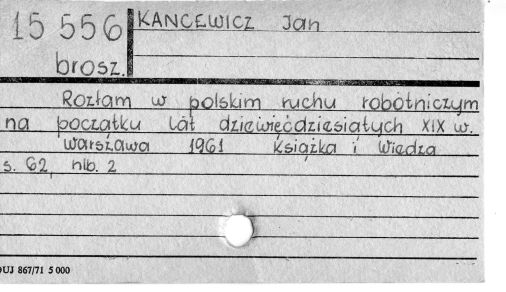 15 556
brosz.
KANCEWICZ Jan
Rozłam w polskim ruchu robotniczym
na początku lat dziewięćdziesiątych XIX w.
Warszawa 1961 Książka i Wiedza
s. 62, nlb. 2
DUJ 867/71 5 000